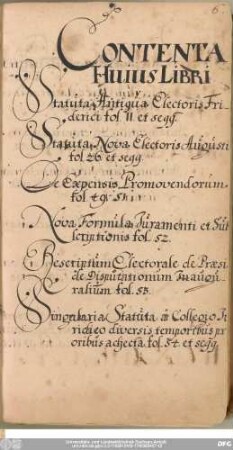 6.
CONTENTA
HUIUS LIBRI
Statuta Antiqua Electoris Fri-
derici fol. 11 et seqq.
Statuta Nova Electoris Augusti
fol. 26 et seqq.
De Expensis Promovendorum
fol. 49. 51.
Nova Formula Juramenti et Sub-
scriptionis fol. 52.
Rescriptum Electorale de Præsi-
de Disputationum Inaugu-
ralium fol. 53.
Singularia Statuta a Collegio Ju-
ridico diversis temporibus pri-
oribus adjecta fol. 54 et seqq.